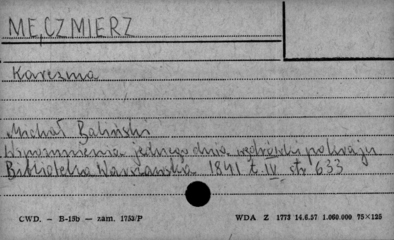 MĘĆMIERZ
Karczma
Michał Baliński
Wspomnienia jednego dnia wędrówki po kraju
Biblioteka Warszawska 1841 t. IV str 633
CWD. — B-15b — zam. 1752/P WDA Z 1773 14.6.57 1.000.000 75×125